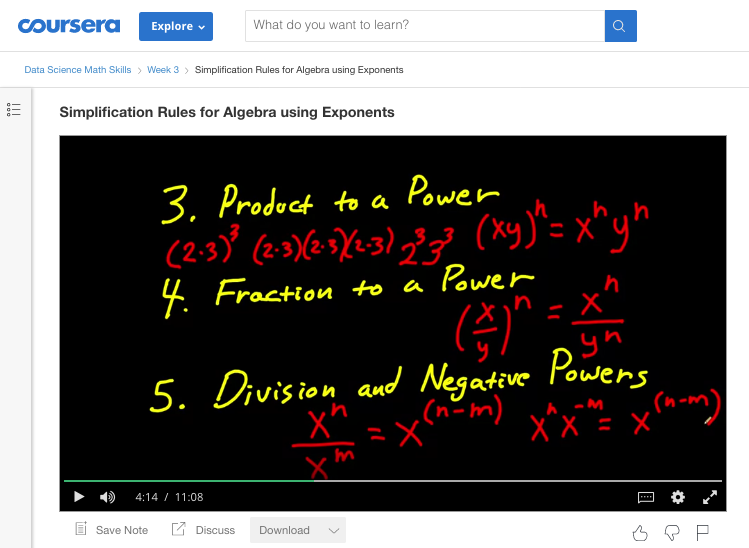 coursera Explore What do you want to learn?
Data Science Math Skills > Week 3 > Simplification Rules for Algebra using Exponents
Simplification Rules for Algebra using Exponents
3. Product to a Power
(2·3)³ (2·3)(2·3)(2·3) 2³3³ (xy)ⁿ = xⁿyⁿ
4. Fraction to a Power
(x/y)ⁿ = xⁿ/yⁿ
5. Division and Negative Powers
xⁿ/xᵐ = x⁽ⁿ⁻ᵐ⁾ xⁿx⁻ᵐ = x⁽ⁿ⁻ᵐ⁾
4:14 / 11:08
Save Note Discuss Download